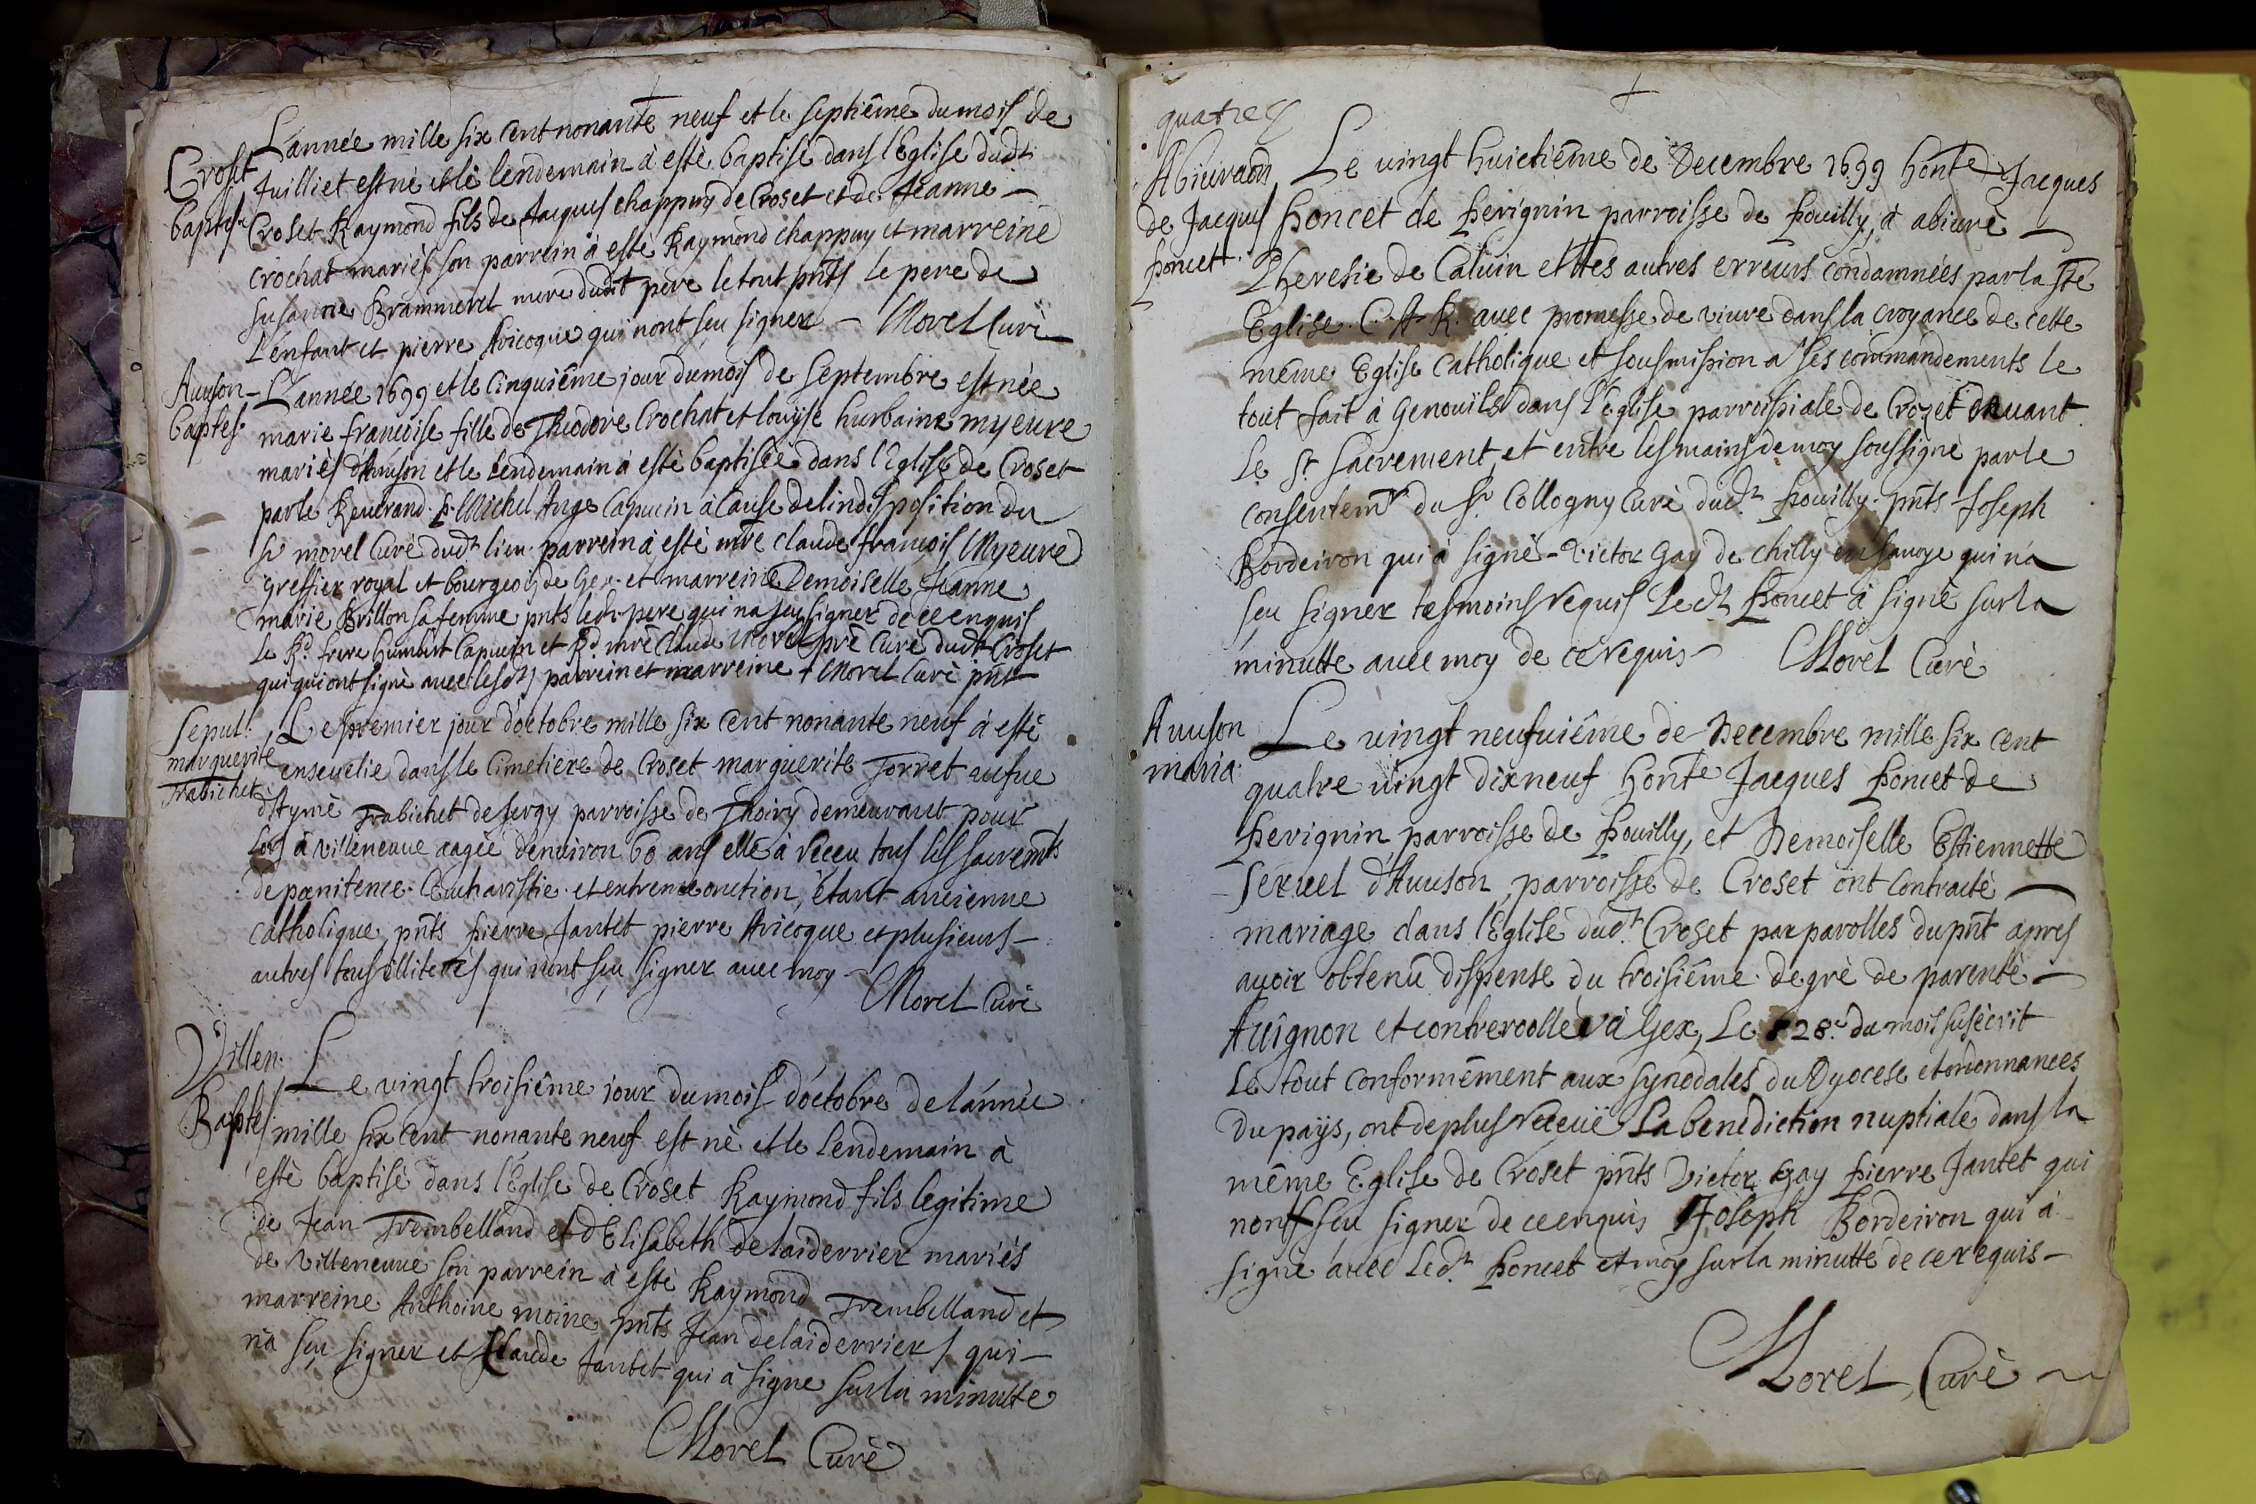 L'année mille six cent nonante neuf et le septiême du mois de
Croset Juilliet est né et le lendemain à estè baptisé dans l'Eglise dudt
baptise Croset Raymond fils de Jacques chappuy de Croset et de Jeanne
crochat mariés son parrein à esté Raymond chappuy et marreine
susanne Brammerel mere dudt père le tout pñts le pere de
L'enfant et pierre Avicoque qui n'ont sçu signer - Morel Curé
Auuson - L'année 1699 et le Cinquiême jour du mois de septembre est née
baptes. marie francoise fille de Theodore Crochat et louyse hurbaine myeure
mariés d'Auuson et le lendemain à estè baptisée dans l'Eglise de Croset
par le Reuerand. P. Michel Ange Capucin à Cause de l'indisposition du
Sr morel Curé dudt lieu. parrein à esté mre claude francois Myeure
greffier royal et bourgeois de Gex. et marreine Demoiselle Jeanne
marie Brillon sa femme pñts ledt pere qui na sçu signer de ce enquis
le Rd. frere humbert Capucin et Rd. mre Claude Morel pre Curé dudt Croset
qui qui ont signé auec lesdts parrein et marreine + Morel Curé pñt
Sepul: Le premier jour d'octobre mille six cent nonante neuf à estè
marguerite enseuelie dans le Cimetiere de Croset marguerite Torret aufue
Trabichet d'Aymé Trabichet de sergy parroisse de Thoiry demeurant pour
lors à villeneuue aagée denuiron 60 ans elle à receu tous les sacremts
de pœnitence. Eucharistie. et extreme onction, êtant ancienne
catholique pñts pierre Jantet pierre Avicoque et plusieurs -
autres tous illiterés qui n'ont sçu signer auec moy -
Morel Curé
Villen. Le vingt troisiême jour du mois d'octobre de l'année
Baptes mille six cent nonante neuf est nè et le lendemain à
estè baptisè dans l'Eglise de Croset Raymond fils legitime
de Jean Trembelland et d'Elisabeth delaiderrier mariés
de villeneuue son parrein à estè Raymond Trembelland et
marreine Anthoine moine pñts Jean delaiderrier qui -
n'a sçu signer et Claude Jantet qui à signe sur la minutte
Morel Curè
quatre
Abiuraon Le vingt huictiême de Decembre 1699 honte Jacques
de Jacques Poncet de Pevignin parroisse de Pouilly, à abiurè -
poncet. L'heresie de Caluin et ttes autres erreurs condamnées par la ste
Eglise. C. A. R. auec promesse de viure dans la croyance de cette
même Eglise Catholique et sousmission a ses commandements le
tout fait à genouils dans l'Eglise parroissiale de Crozet deuant
Le St sacrement, et entre les mains de moy soussignè par le
consentemt du Sr Collogny Curè dudt Pouilly. pñts Joseph
Bordeiron qui à signè - victor Gay de chilly en sauoye qui na
sçu signer tesmoins requis Ledt Poncet à signè sur la
minutte auec moy de ce requis - Morel Curè
Auuson Le vingt neufuiême de Decembre mille six cent
maria. quatre vingt dixneuf honte Jacques Poncet de
Pevignin parroisse de Pouilly, et Demoiselle Estiennette
Seruel d'Auuson, parroisse de Croset ont Contractè -
mariage dans l'Eglise dudt Croset par parolles du pñt apres
auoir obtenû dispense du troisiême degrè de parentè -
Auignon et contreroollé à Gex, Le 28e du mois susècrit
Le tout conformêment aux synodales du Dyocese et ordonnances
du païs, ont de plus receuë La benediction nuptiale dans la
même Eglise de Croset pñts victor gay pierre Jantet qui
nont sçu signer de ce enquis Joseph Bordeiron qui à
signè auec Ledt Poncet et moy sur la minutte de ce requis -
Morel, Curè